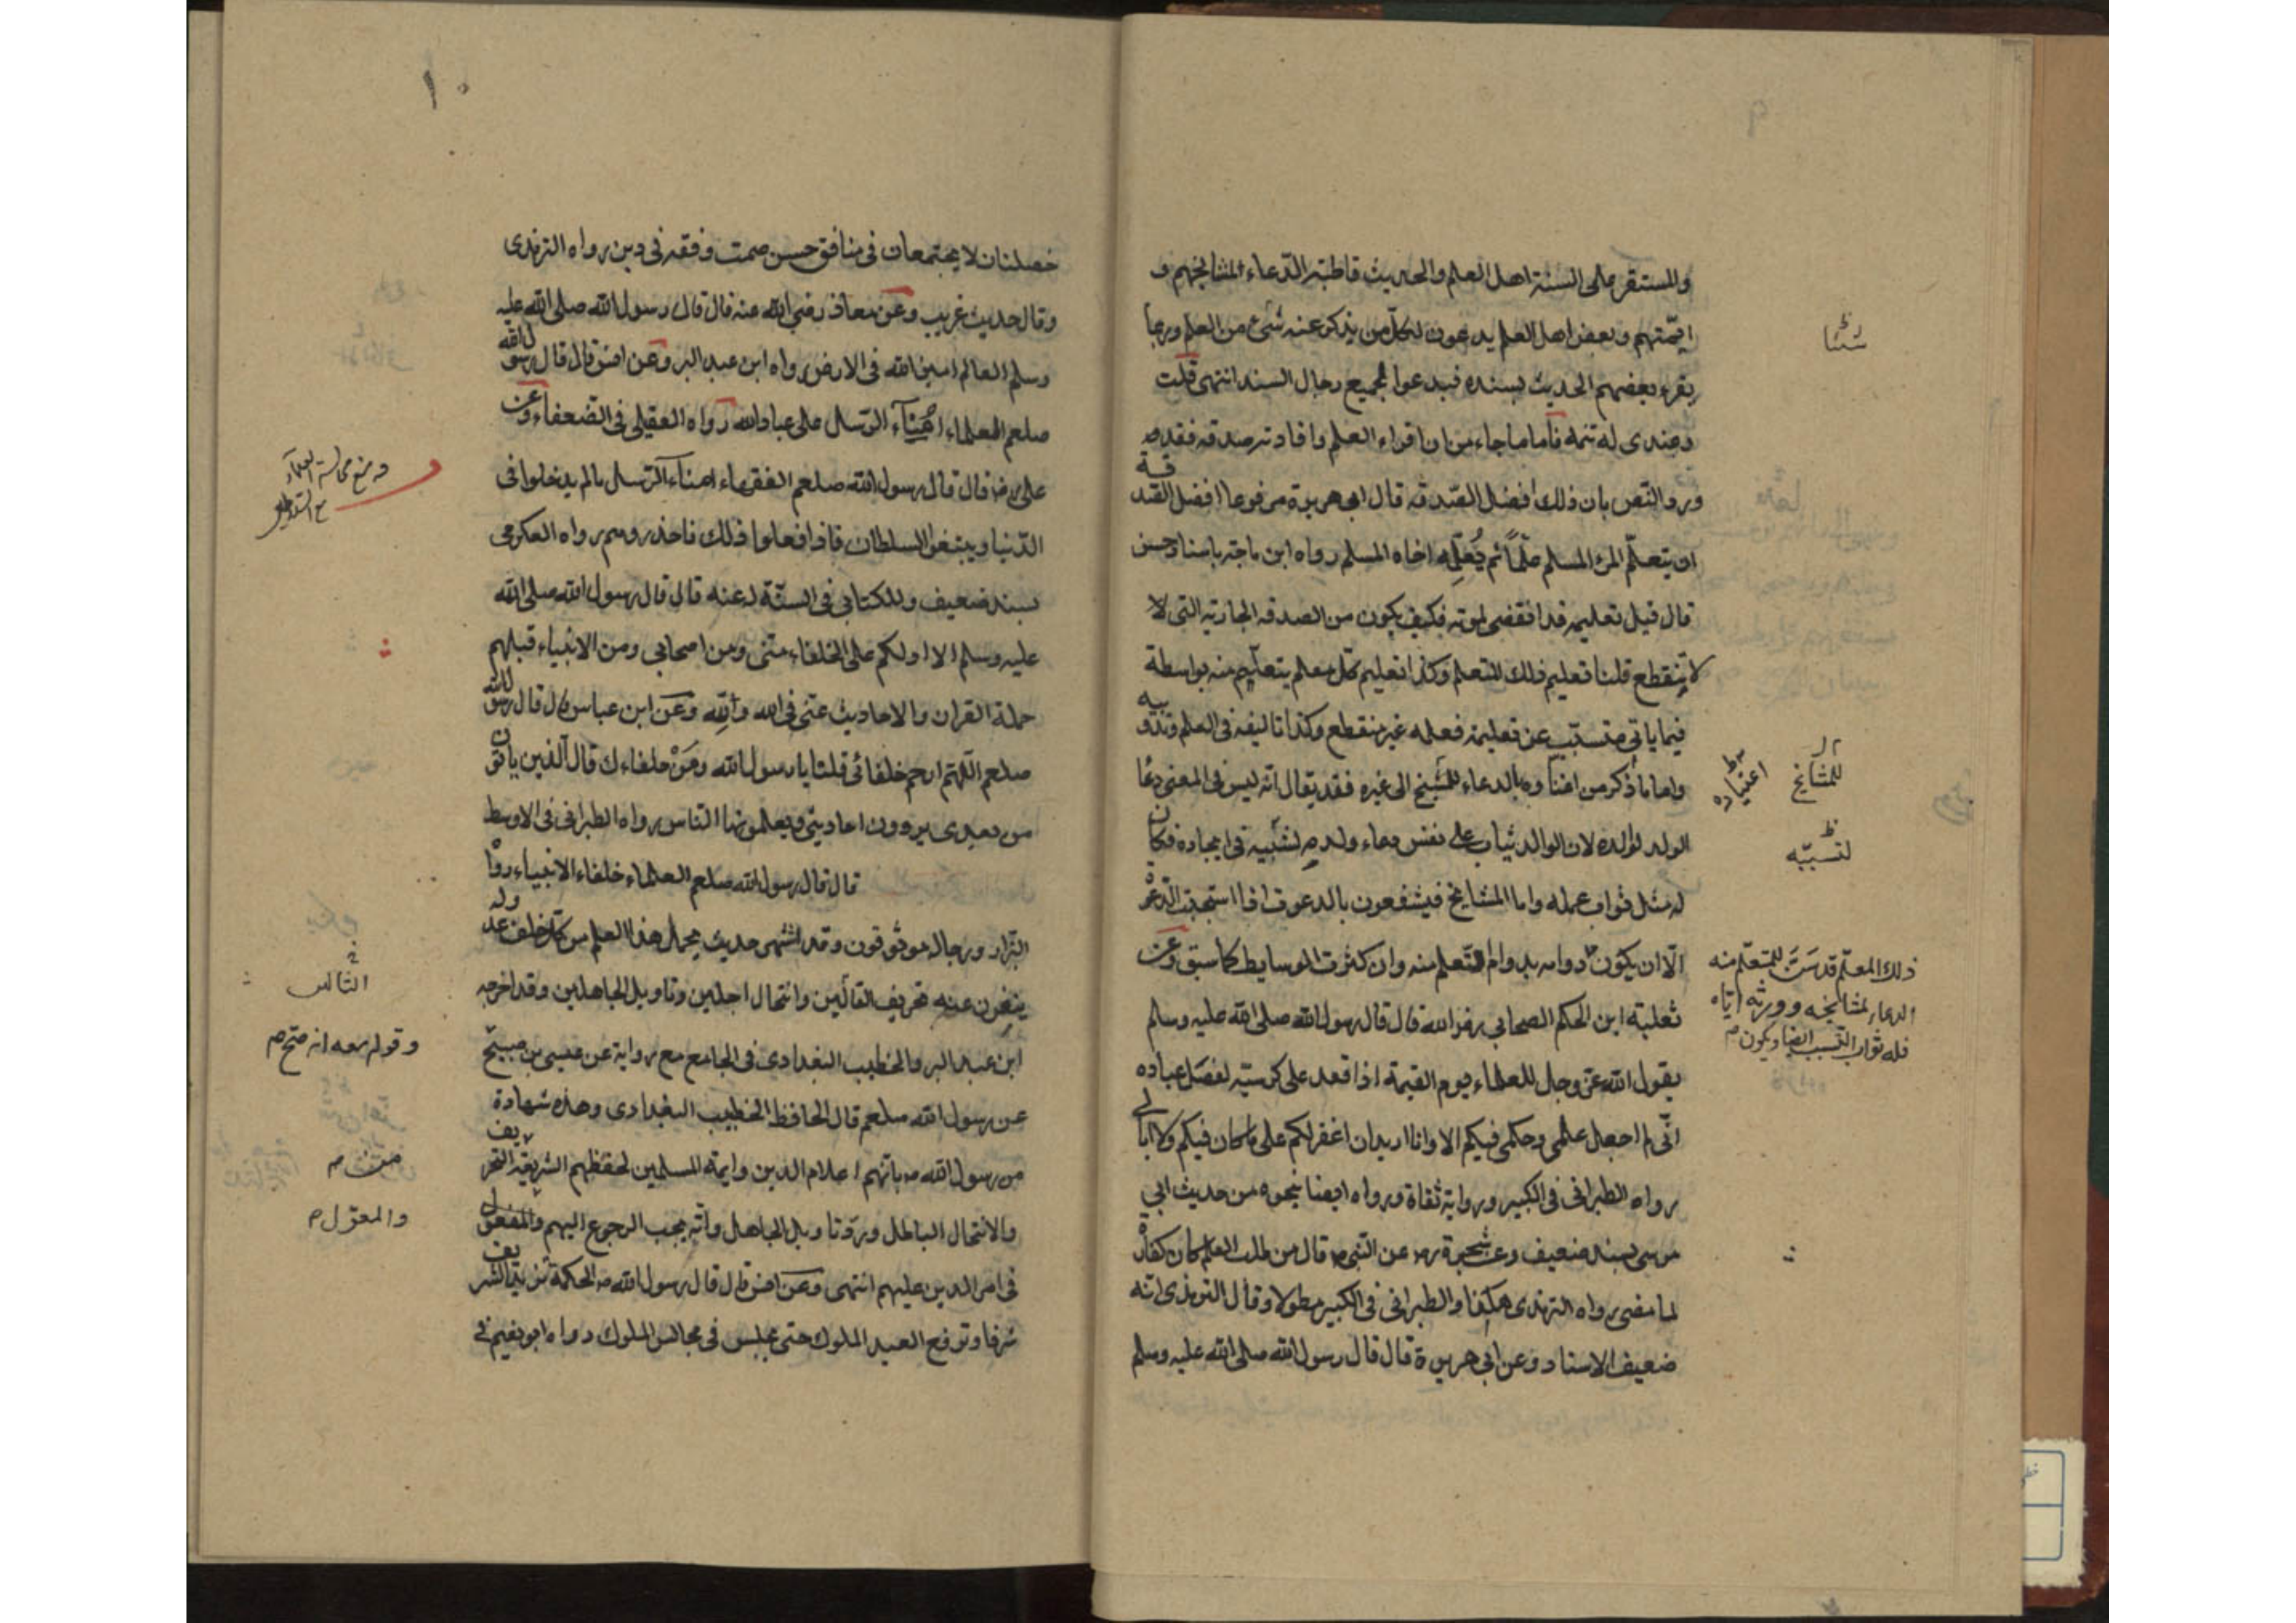 والمستقر على السنة اهل العلم والحديث قاطبة الدعاء لمشايخهم و
ايمتهم وبعض اهل العلم يدعون لكل من يذكر عنه شئ من العلم وربما
يقرء بعضهم الحديث بسنده فيدعوا لجميع رجال السند انتهى قلت
وعندى له تتمه فاما ما جاء من ان اقراء العلم وافادته صدقه فقد
ورد النص بان ذلك افضل الصدقه قال ابى هريرة مرفوعا افضل الصد قة
ان يتعلم المرء المسلم علما ثم يعلمه اخاه المسلم رواه ابن ماجة باسناد حسن
قال قيل تعليمه قد انقضى لموته فكيف يكون من الصدقه الجارية التى لا
لا تنقطع قلنا تعليم ذلك المتعلم وكذا تعليم كل معلم يتعلم منه بواسطة
فيما ياتى متسبب عن تعليمه فعمله غير منقطع وكذا تاليفه فى العلم
واما ما ذكر من بالدعاء للشيخ الى غيره فقد يقال انه ليس فى المعنى
الولد لوالده لان الوالد يثاب على نفس دعاء ولده فى ايجاده فكان
له مثل ثواب عمله واما المشايخ فيشفعون بالدعوة اذا استجيبت
الا ان يكون دوامه بدوام التعلم منه وان كثرت الوسايط كما سبق وعن
ثعلبة ابن الحكم الصحابى قال قال رسول الله صلى الله عليه وسلم
يقول الله عز وجل للعلماء يوم القيمة اذا قعد على كرسيه لفصل عباده
انى لم اجعل علمى وحكمى فيكم الا وانا اريد ان اغفر لكم على ما كان فيكم ولا ابالى
رواه الطبرانى فى الكبير ورواية ثقاة ورواه ايضا بنحوه من حديث ابى
موسى بسند ضعيف وعن سخبرة عن النبى قال من طلب العلم كان كفارة
لما مضى رواه الترمذى هكذا والطبرانى فى الكبير مطولا وقال الترمذى انه
ضعيف الاسناد وعن ابى هريرة قال قال رسول الله صلى الله عليه وسلم
شئنا
للمشايخ
اعتياده
لتسببه
ذلك المعلم قد سن للمتعلم منه
الدعاء لمشايخه وورثه اياه
فله ثواب التسبب ايضا ويكون
١٠
خصلتان لا يجتمعان فى منافق حسن صمت وفقه فى دين رواه الترمذى
وقال حديث غريب وعن معاذ رضى الله عنه قال قال رسول الله صلى الله عليه
وسلم العالم امين الله فى الارض رواه ابن عبد البر وعن انس قال قال رسول الله
صلعم العلماء امناء الرسل على عباد الله رواه العقيلى فى الضعفاء وعن
على قال قال رسول الله صلعم الفقهاء امناء الرسل ما لم يدخلوا فى
الدنيا ويتبعوا السلطان فاذا فعلوا ذلك فاحذروهم رواه العكرى
بسند ضعيف وللكتابى فى السنة له عنه قال قال رسول الله صلى الله
عليه وسلم الا ادلكم على الخلفاء منى ومن اصحابى ومن الانبياء قبلهم
حملة القران والاحاديث عنى فى الله ولله وعن ابن عباس قال قال رسول الله
صلعم اللهم ارحم خلفائى قلنا يا رسول الله ومن خلفاءك قال الذين ياتون
من بعدى يروون احاديثى ويعلمونها الناس رواه الطبرانى فى الاوسط
قال قال رسول الله صلعم العلماء خلفاء الانبياء رواه
البزار ورجاله موثوقون وقد اشتهر حديث يحمل هذا العلم من كل خلف عدوله
ينفون عنه تحريف القالين وانتحال اجلين وتاويل الجاهلين وقد اخرجه
ابن عبد البر والخطيب البغدادى فى الجامع مع رواية عن عيسى بن صبيح
عن رسول الله صلعم قال الحافظ الخطيب البغدادى وهذه شهادة
من رسول الله بانهم اعلام الدين وايمة المسلمين لحفظهم الشريعة التحريف
والانتحال الباطل ورد تاويل الجاهل وانه يجب الرجوع اليهم والمعول
فى امر الدين عليهم انتهى وعن انس قال قال رسول الله الحكمة تزيد الشريف
شرفا وترفع العبد المملوك حتى يجلس فى مجالس الملوك رواه ابو نعيم فى
الثالث
وقولهم معه انه صح
من
والمعول